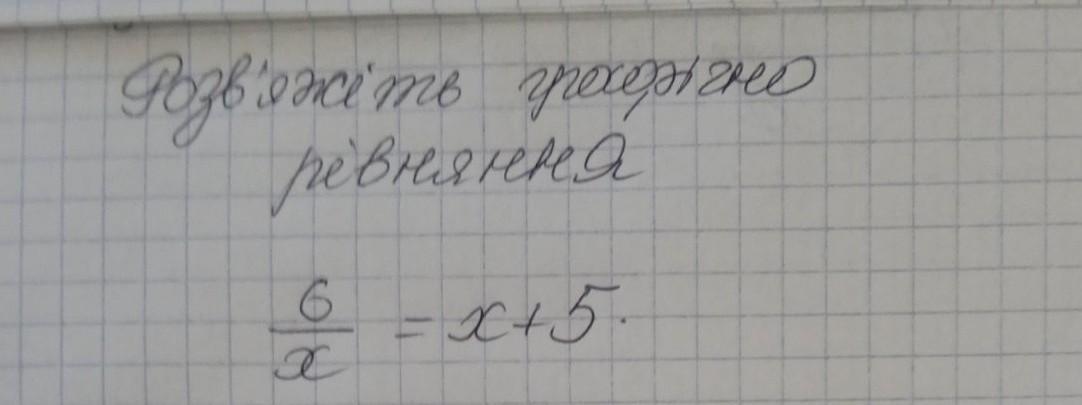 Розв'яжіть графічно
рівняння
6/x = x+5.